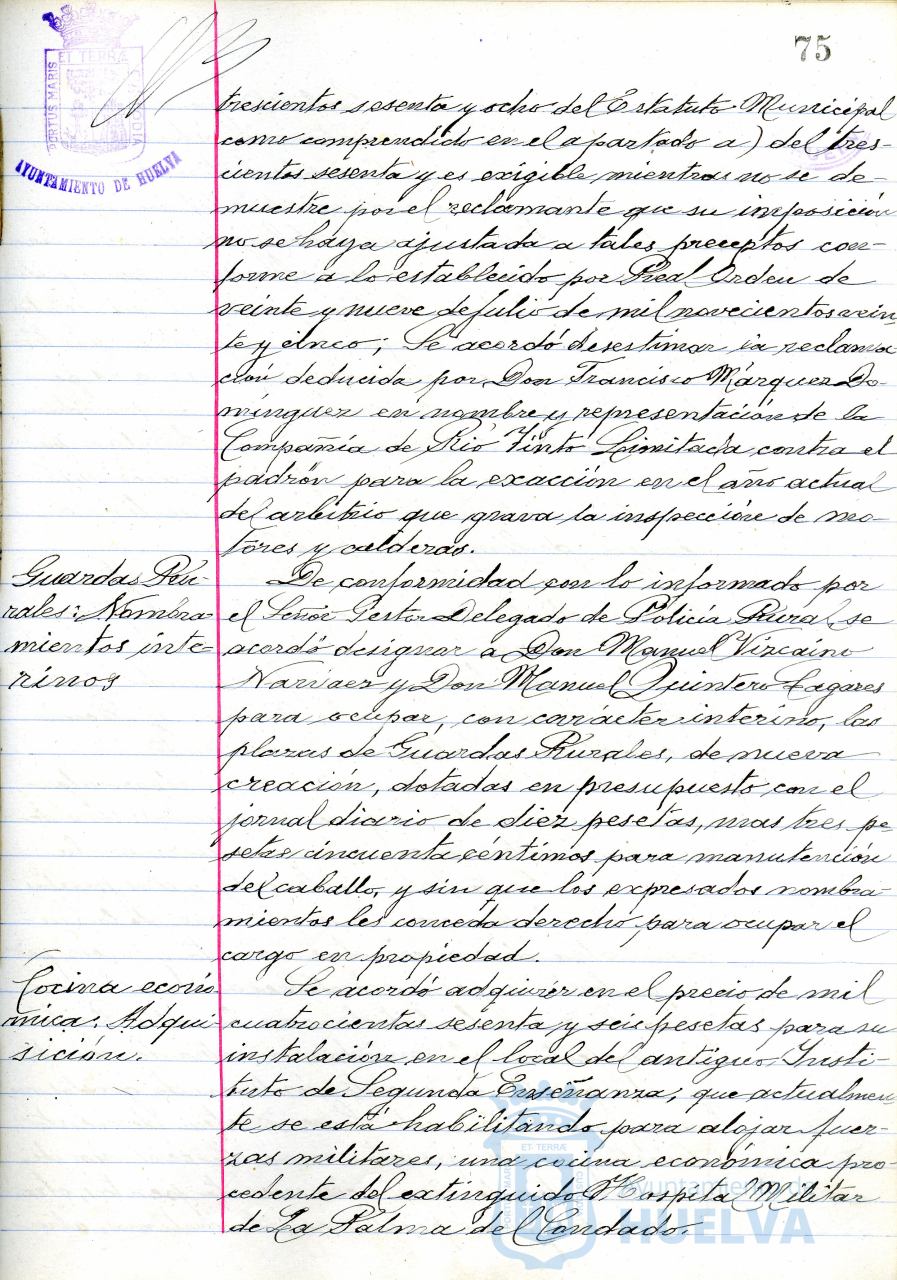 75
ET TERRÆ
PORTUS MARIS
CUSTODIA
AYUNTAMIENTO DE HUELVA
trescientos sesenta y ocho del Estatuto Municipal
como comprendido en el apartado a) del tres-
cientos sesenta y es exigible mientras no se de-
muestre por el reclamante que su imposición
no se haya ajustada a tales preceptos con-
forme a lo establecido por Real Orden de
veinte y nueve de Julio de mil novecientos vein-
te y cinco; Se acordó desestimar la reclama-
ción deducida por Don Francisco Márquez Do-
mínguez en nombre y representación de la
Compañía de Rio Tinto Limitada contra el
padrón para la exacción en el año actual
del arbitrio que grava la inspección de mo-
tores y calderas.
Guardas Ru-
rales: Nombra-
mientos inte-
rinos
De conformidad con lo informado por
el Señor Gestor Delegado de Policía Rural, se
acordó designar a Don Manuel Vizcaino
Narvaez y Don Manuel Quintero Cagares
para ocupar, con carácter interino, las
plazas de Guardas Rurales, de nueva
creación, dotadas en presupuesto con el
jornal diario de diez pesetas, mas tres pe-
setas cincuenta céntimos para manutención
del caballo, y sin que los expresados nombra-
mientos les conceda derecho para ocupar el
cargo en propiedad.
Cocina econó-
mica: Adqui-
sición.
Se acordó adquirir en el precio de mil
cuatrocientas sesenta y seis pesetas para su
instalación en el local del antiguo Insti-
tuto de Segunda Enseñanza, que actualmen-
te se está habilitando para alojar fuer-
zas militares, una cocina económica pro-
cedente del extinguido Hospital Militar
de La Palma del Condado.
ET TERRÆ
Ayuntamiento de
HUELVA